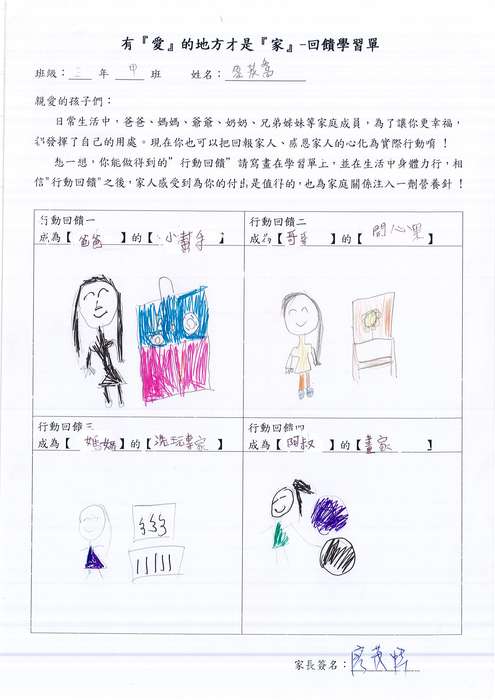 有『愛』的地方才是『家』-回饋學習單
班級：三 年 甲 班 姓名：
親愛的孩子們：
日常生活中，爸爸、媽媽、爺爺、奶奶、兄弟姊妹等家庭成員，為了讓你更幸福，
都發揮了自己的用處。現在你也可以把回報家人、感恩家人的心化為實際行動唷！
想一想，你能做得到的"行動回饋"請寫畫在學習單上，並在生活中身體力行，相
信"行動回饋"之後，家人感受到為你的付出是值得的，也為家庭關係注入一劑營養針！
行動回饋一
成為【爸爸】的【小幫手】
行動回饋二
成為【哥哥】的【開心果】
行動回饋三
成為【媽媽】的【洗玩專家】
行動回饋四
成為【阿叔】的【畫家】
家長簽名：